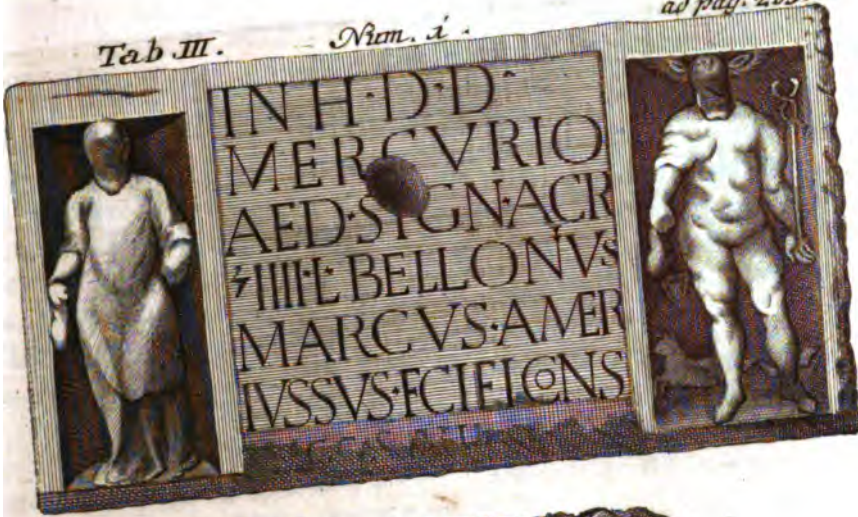 Tab III. Num. 1.
ad pag.
IN H·D·D·
MERCVRIO
AED·SIGN·ACR
IIII·L·BELLONVS
MARCVS·AMER
IVSSVS·FCIEICONS